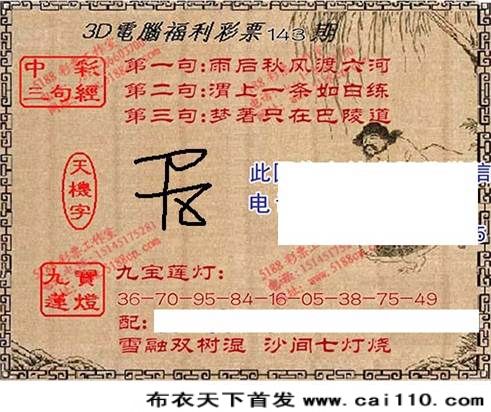 3D電腦福利彩票143期
中彩
三句經
第一句:雨后秋风渡六河
第二句:渭上一条如白练
第三句:梦著只在巴陵道
天機字
此
信
电
5
九寶
蓮燈
九宝莲灯:
36-70-95-84-16-05-38-75-49
配:
雪融双树湿 沙间七灯烧
5188 彩票工作室
15145175281
www.5188cp
布衣天下首发 www.cai110.com